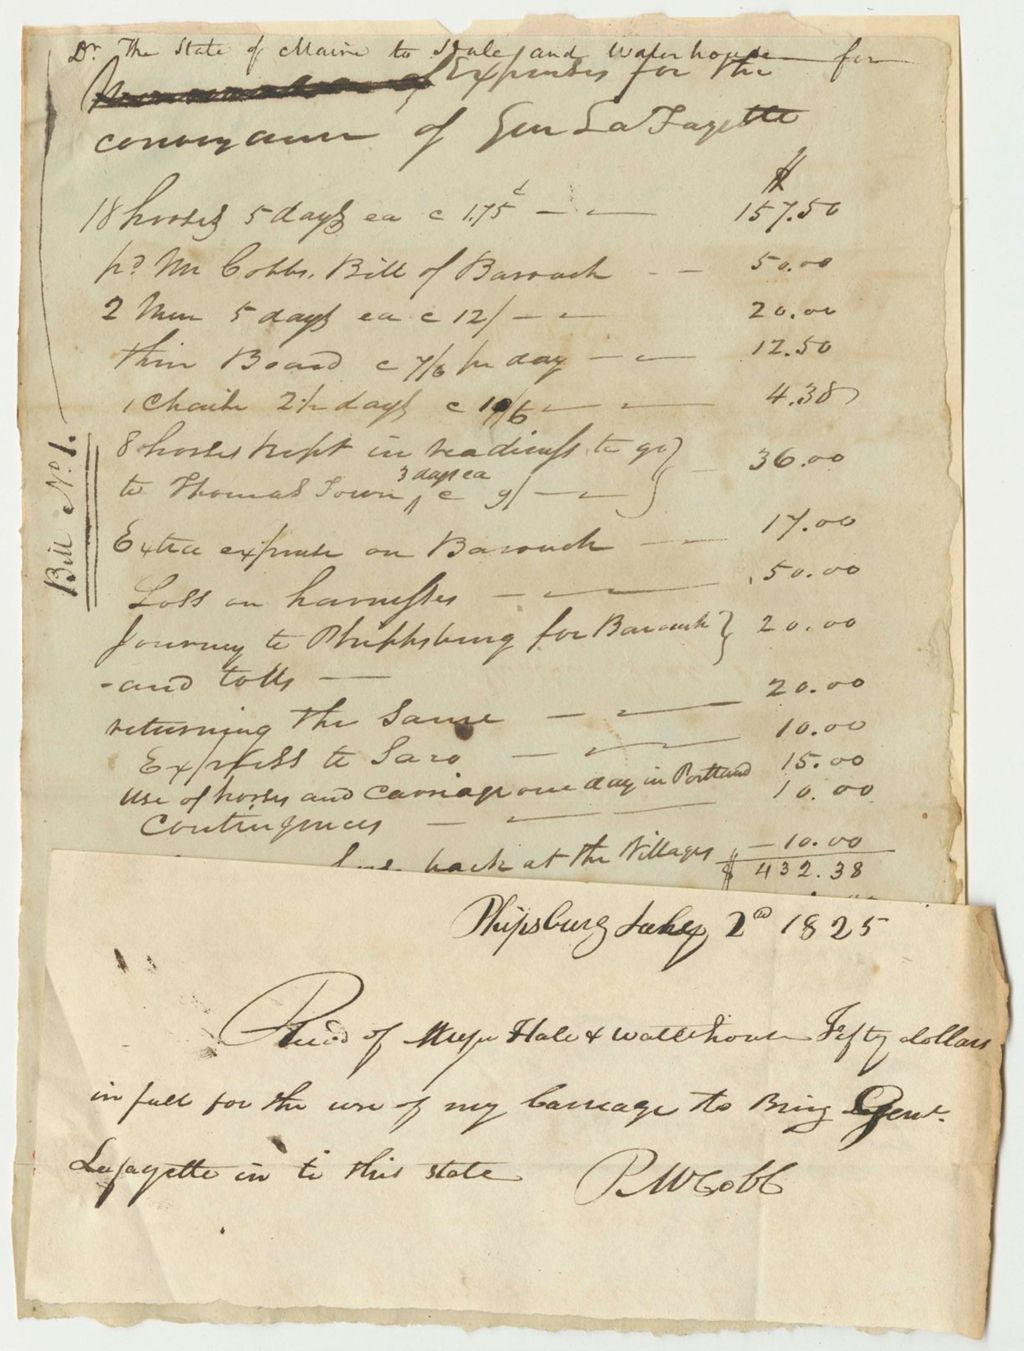 Dr. The State of Maine to Hale and Waterhouse for
Expenses for the
conveyance of Gen La Fayette
$
18 horses 5 days ea c 1.75 c — — 157.50
pd Mr Cobbs, Bill of Barouch - - 50.00
2 Men 5 days ea c 12/ - - 20.00
thier Board c 7/6 pr day - - 12.50
1 Chaise 2 1/2 days c 10/6 — — 4.38
8 horses kept in readiness to go
to Thomas Town 3 days ea c 9/ — — 36.00
Extra expense on Barouch — — 17.00
Loss on harnesses - — 50.00
Journey to Phippsburg for Barouch 20.00
- and tolls —
returning the Same — — 20.00
Express to Saco — — 10.00
Use of horses and Carriage one day in Portland 15.00
Contingences — — 10.00
back at the Villages — 10.00
$ 432.38
Bill No. 1.
Phipsburg July 2d 1825
Recd of Messrs Hale & Waterhouse Fifty dollars
in full for the use of my Carriage to Bring Genl.
Lafayette in to this state P. M Cobb